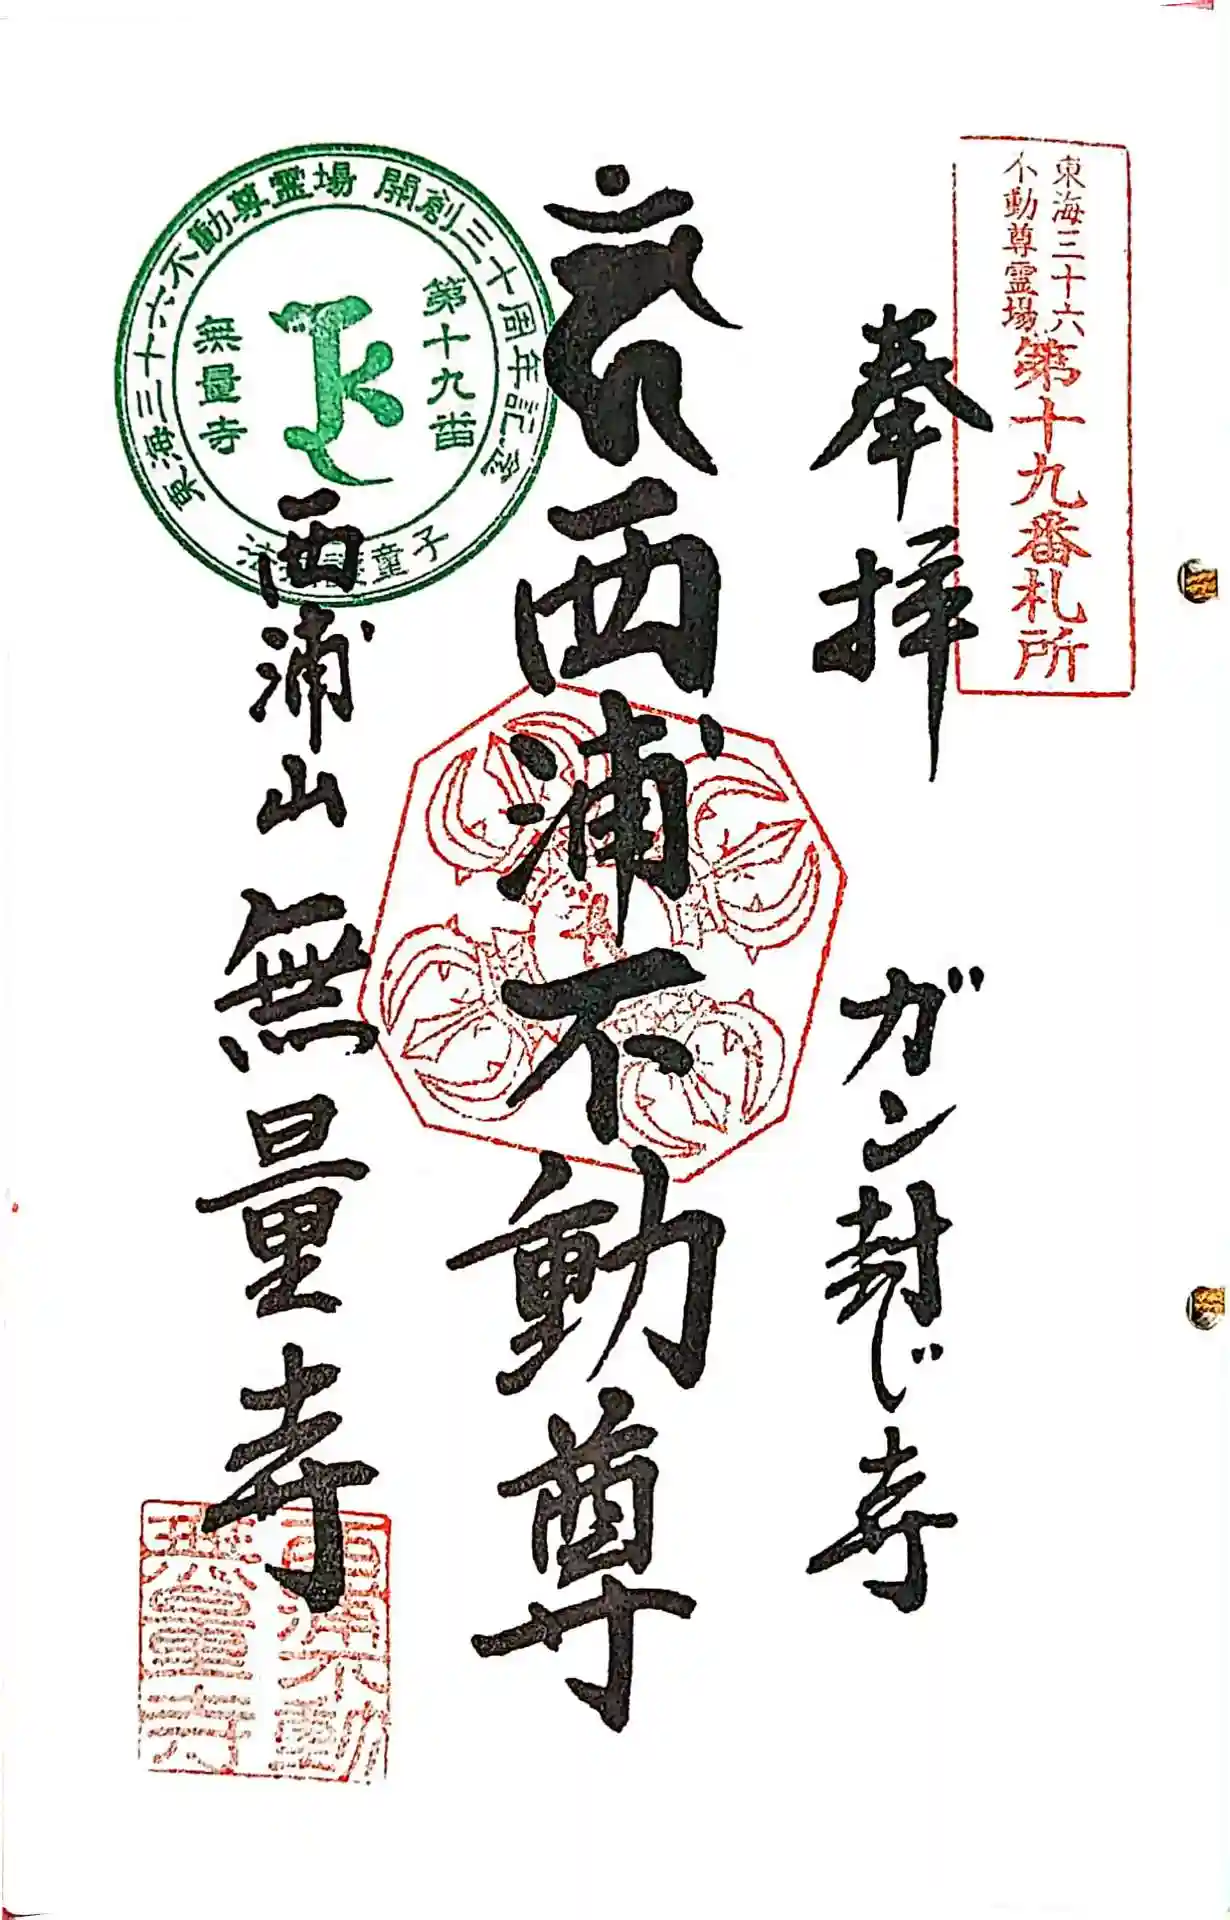 東海三十六
不動尊霊場
第十九番札所
奉拝
ガン封じ寺
西浦不動尊
東海三十六不動尊霊場 開創三十周年記念
第十九番
無量寺
童子
西浦山 無量寺
西浦不動
無量寺